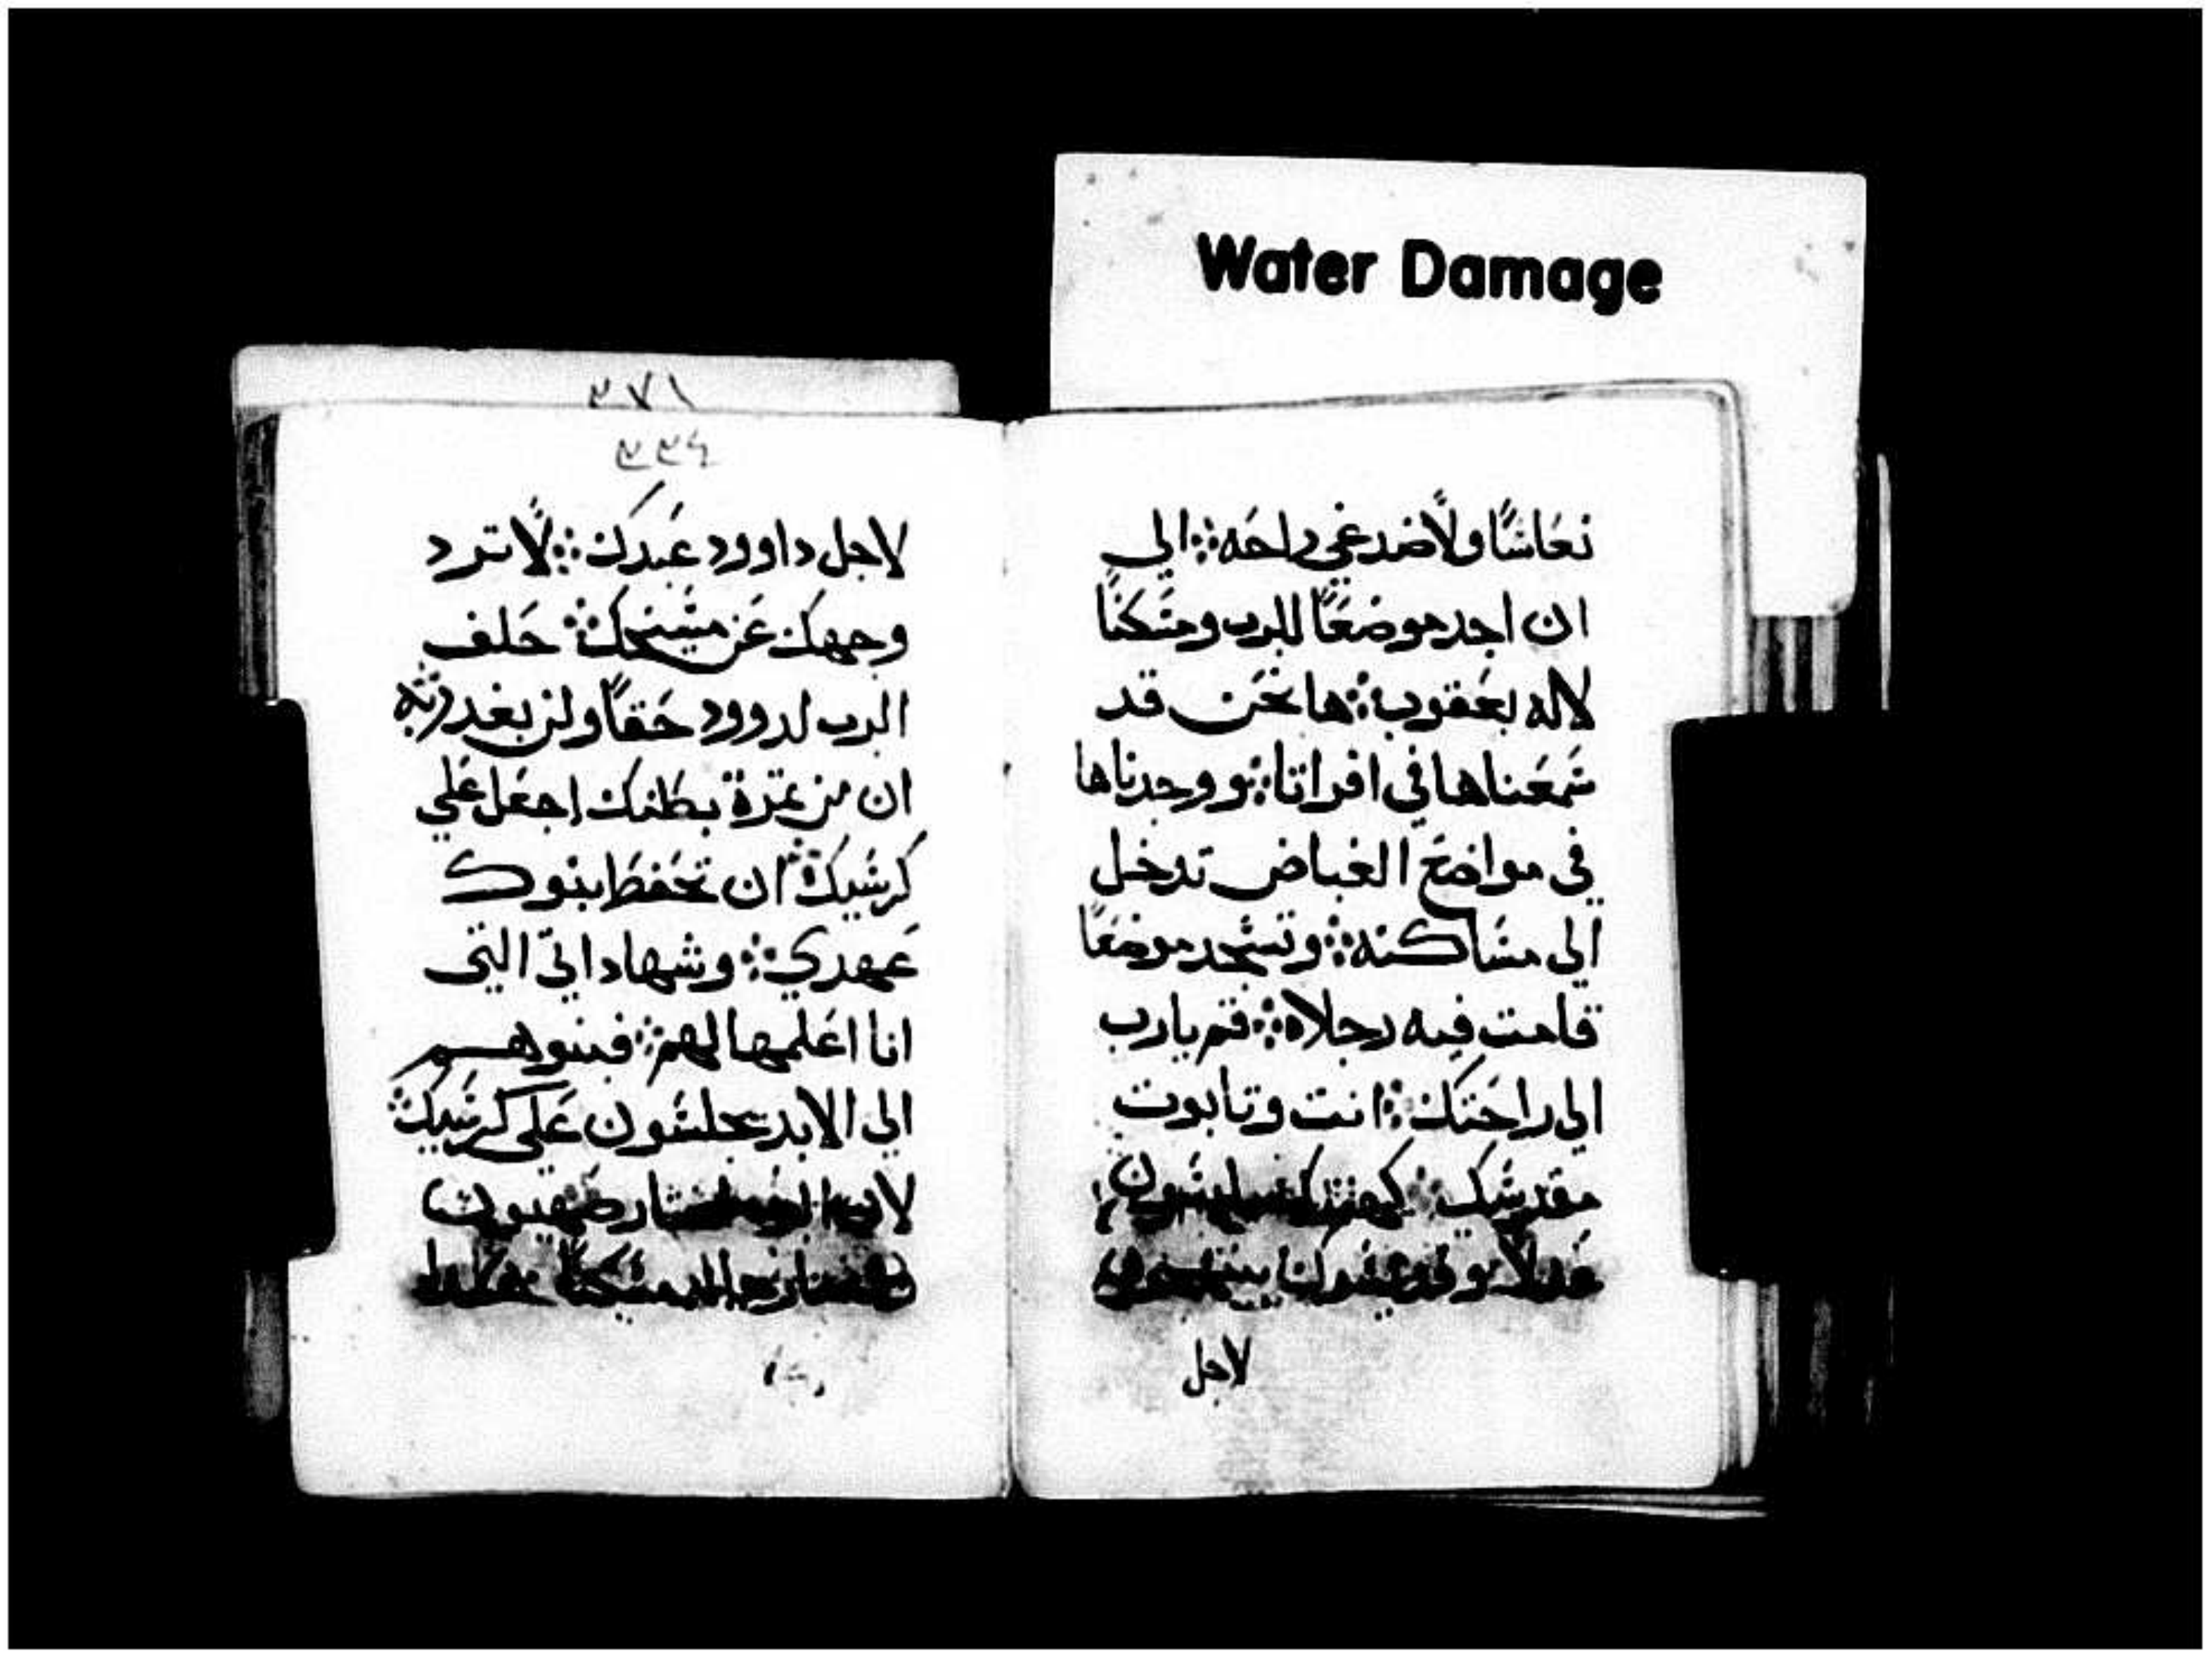 Water Damage
نعاسًا ولًا ضدغي راحه ؞ الي
ان اجد موضعًا للرب ومسكنًا
لاله يعقوب ؞ ها نحن قد
سمعناها في افراتا ؞ ووجدناها
في مواضع الغياض ندخل
الي مساكنه ؞ ونسجد موضعًا
قامت فيه رجلاه ؞ قم يارب
الي راحتك ؞ انت وتابوت
مقدسك ؞ كهنتك يلبسون
عدلًا وقديسوك
لاجل
٣٧١
٣٣٤
لاجل داوود عبدك ؞ لًا ترد
وجهك عن مسيحك ؞ حلف
الرب لدوود حقًا ولن يغدر به
ان من ثمرة بطنك اجعل علي
كرسيك ؞ ان تحفظ بنوك
عهدي ؞ وشهاداتي التي
انا اعلمها لهم ؞ فبنوهم
الي الابد يجلسون علي كرسيك ؞
لان الرب اختار صهيون
مسكنًا